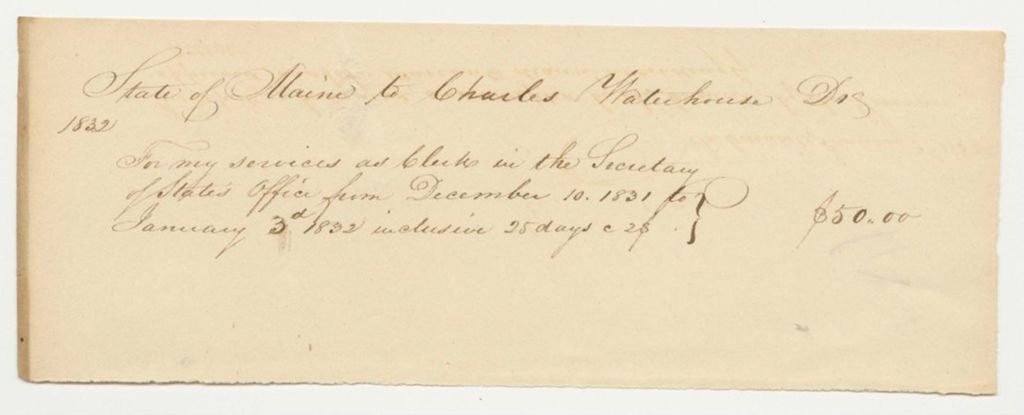 State of Maine to Charles Waterhouse Dr
1832
For my services as Clerk in the Secretary
of States Office from December 10. 1831 to
January 3d 1832 inclusive 25 days @ 2$ . } $50.00